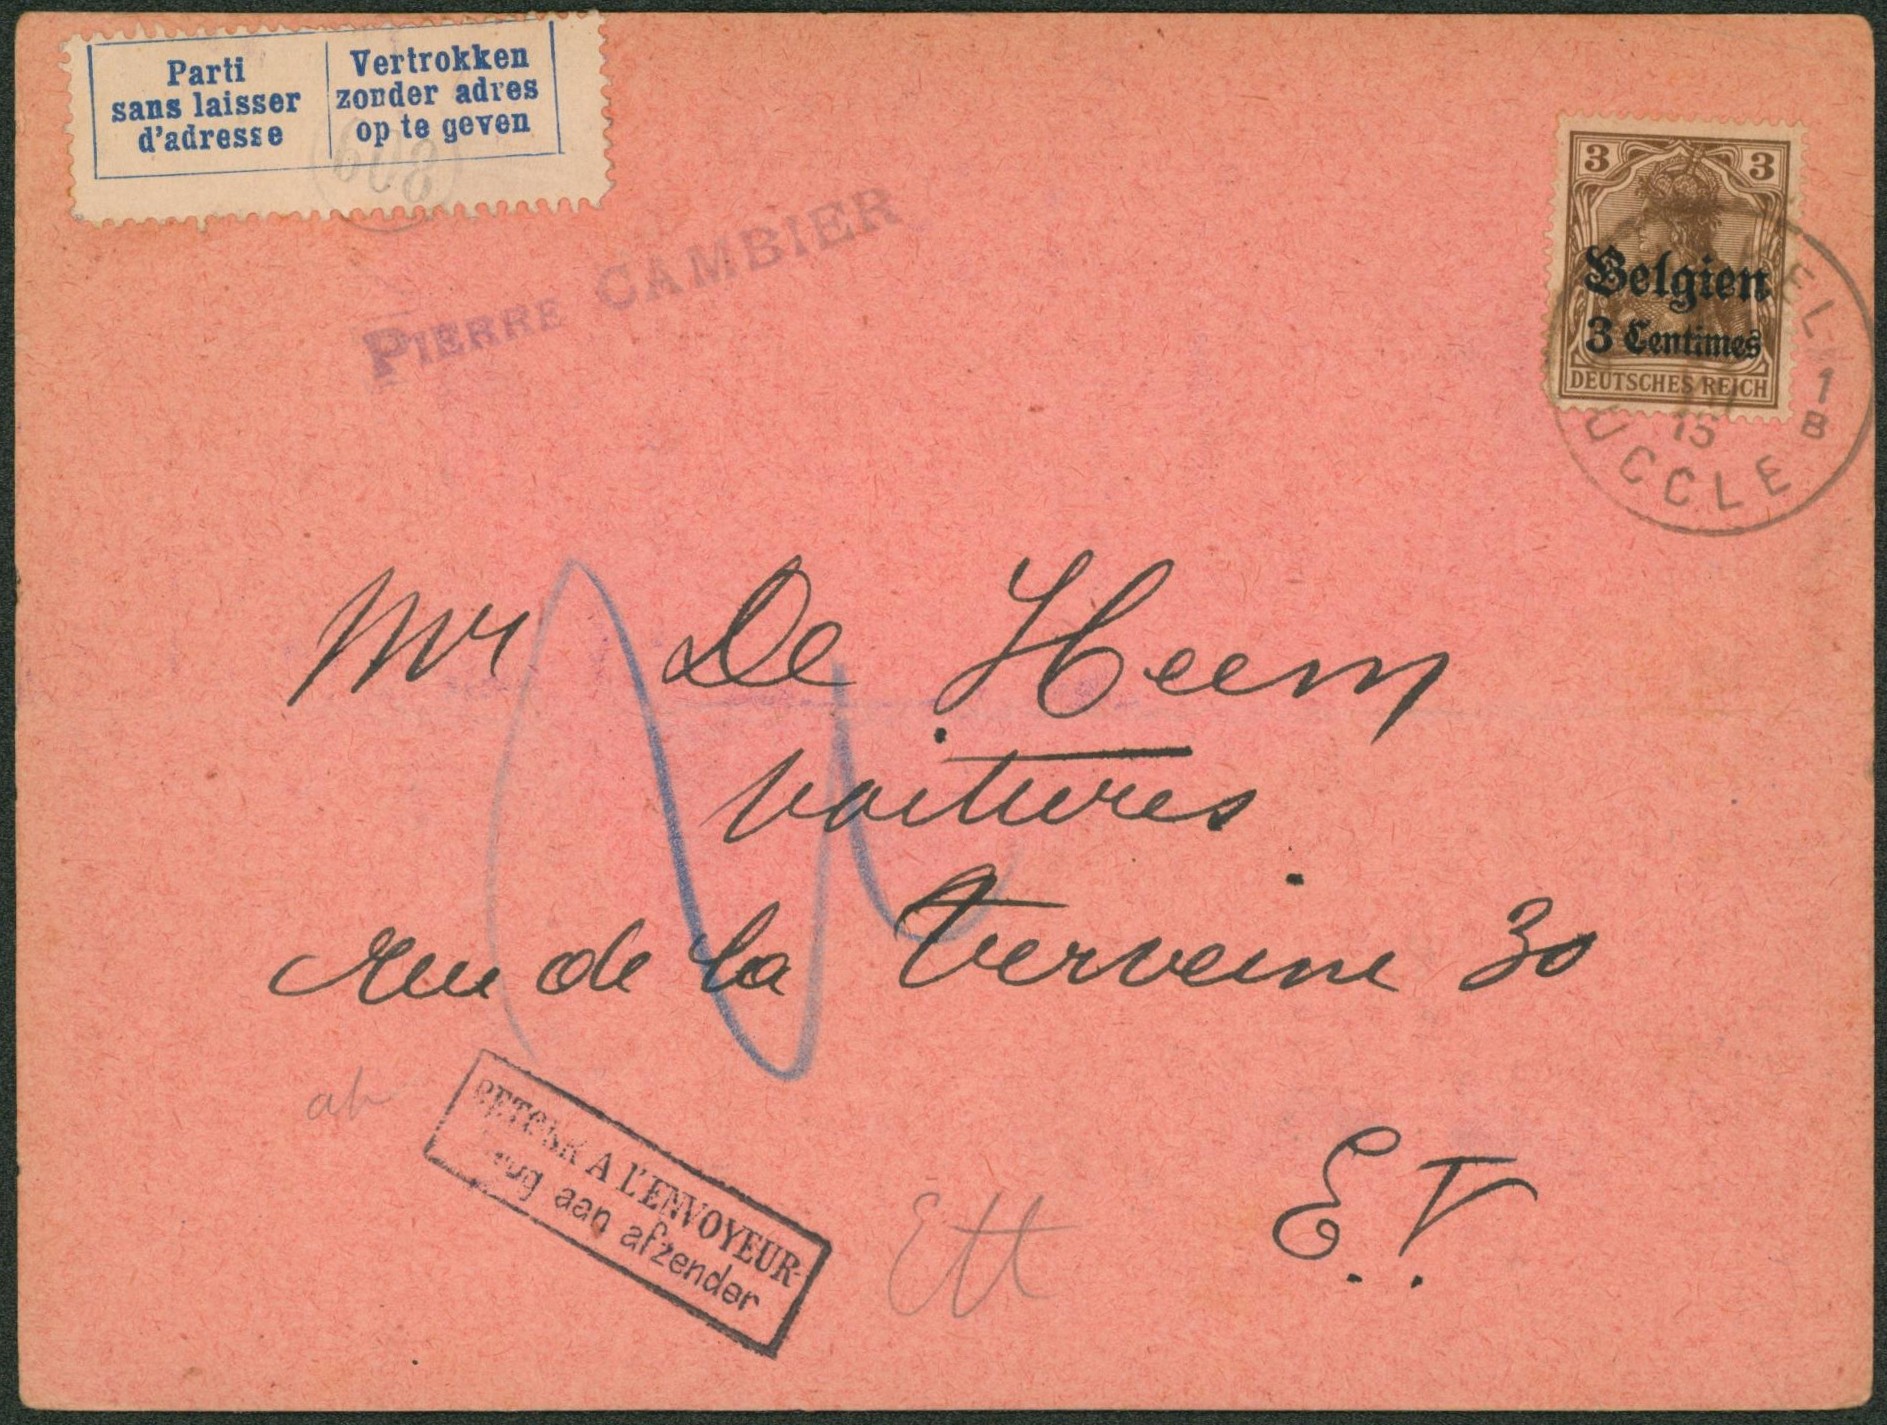 Parti
sans laisser
d'adresse
Vertrokken
zonder adres
op te geven
608
PIERRE CAMBIER
3 3
Belgien
3 Centimes
DEUTSCHES REICH
15
1
B
UCCLE
Mr De Heem
voitures
rue de la Verveine 30
RETOUR A L'ENVOYEUR
aan afzender
E.V.